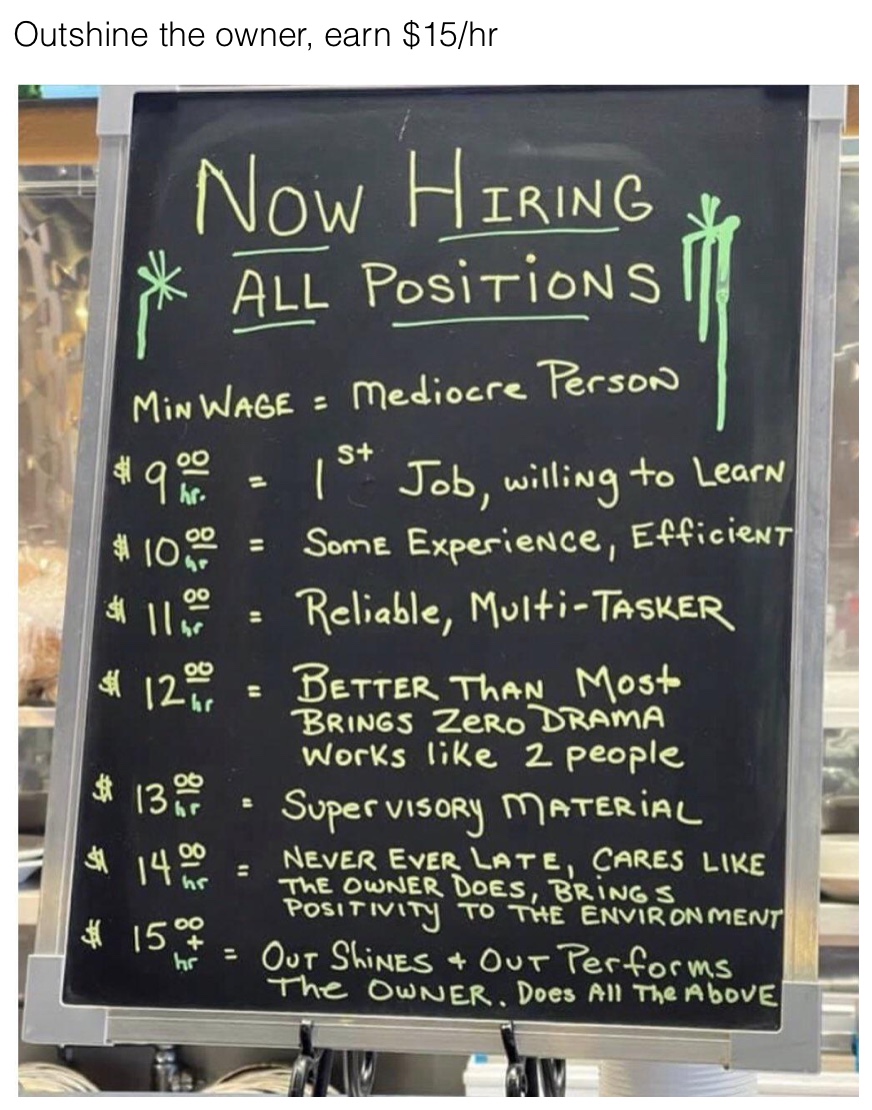 Outshine the owner, earn $15/hr
NOW HIRING
ALL POSITIONS
MIN WAGE = Mediocre Person
$9.00 hr. = 1st Job, willing to Learn
$10.00 hr = Some Experience, Efficient
$11.00 hr = Reliable, Multi-TASKER
$12.00 hr = BETTER THAN Most
BRINGS ZERO DRAMA
Works like 2 people
$13.00 hr = Supervisory MATERIAL
$14.00 hr = NEVER EVER LATE, CARES LIKE
THE OWNER DOES, BRINGS
POSITIVITY TO THE ENVIRONMENT
$15.00 + hr = OUT SHINES + OUT Performs
The OWNER. Does All The Above